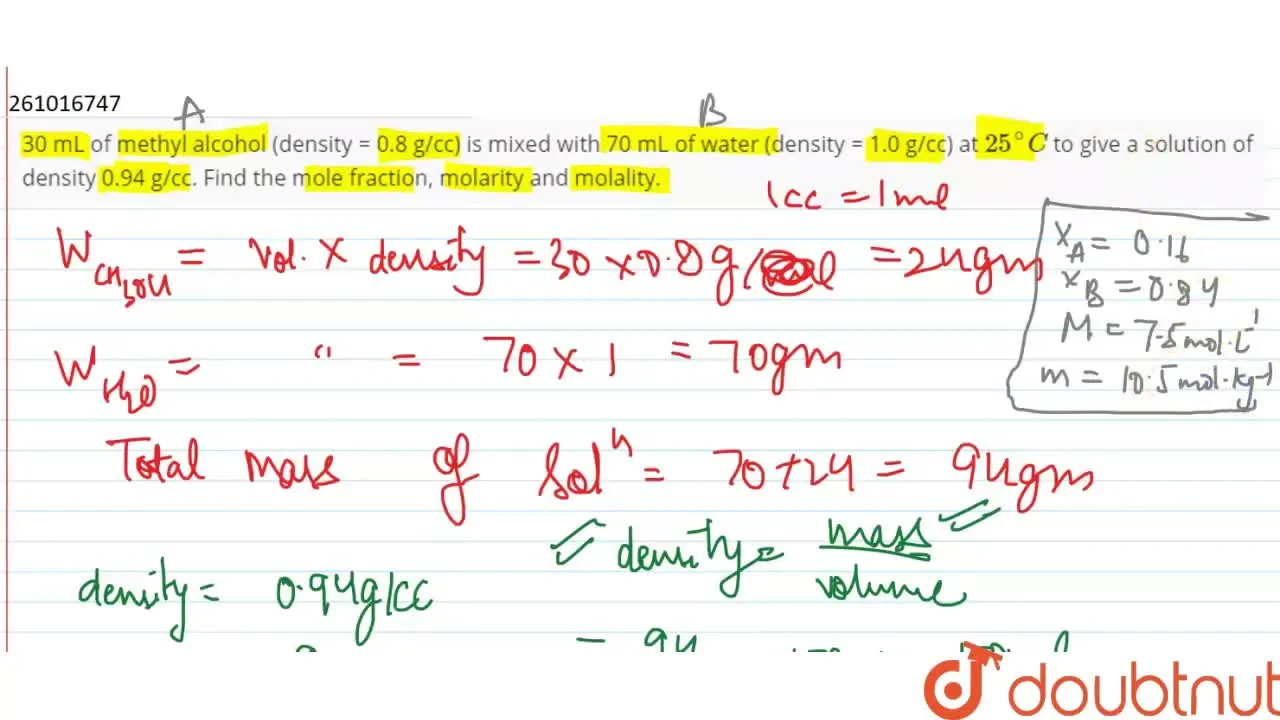 261016747
A
B
30 mL of methyl alcohol (density = 0.8 g/cc) is mixed with 70 mL of water (density = 1.0 g/cc) at 25°C to give a solution of
density 0.94 g/cc. Find the mole fraction, molarity and molality.
1cc = 1ml
W CH3OH = vol. × density = 30 × 0.8 g/ml = 24gm
xA = 0.16
xB = 0.84
M = 7.5 mol.L-1
m = 10.5 mol.kg-1
W H2O = " = 70 × 1 = 70gm
Total mass of Soln = 70+24 = 94gm
density = mass
volume
density = 0.94g/cc
= 94
doubtnut